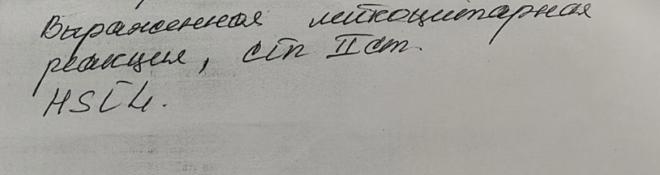 Выраженная лейкоцитарная
реакция, стп II ст.
HSIL.